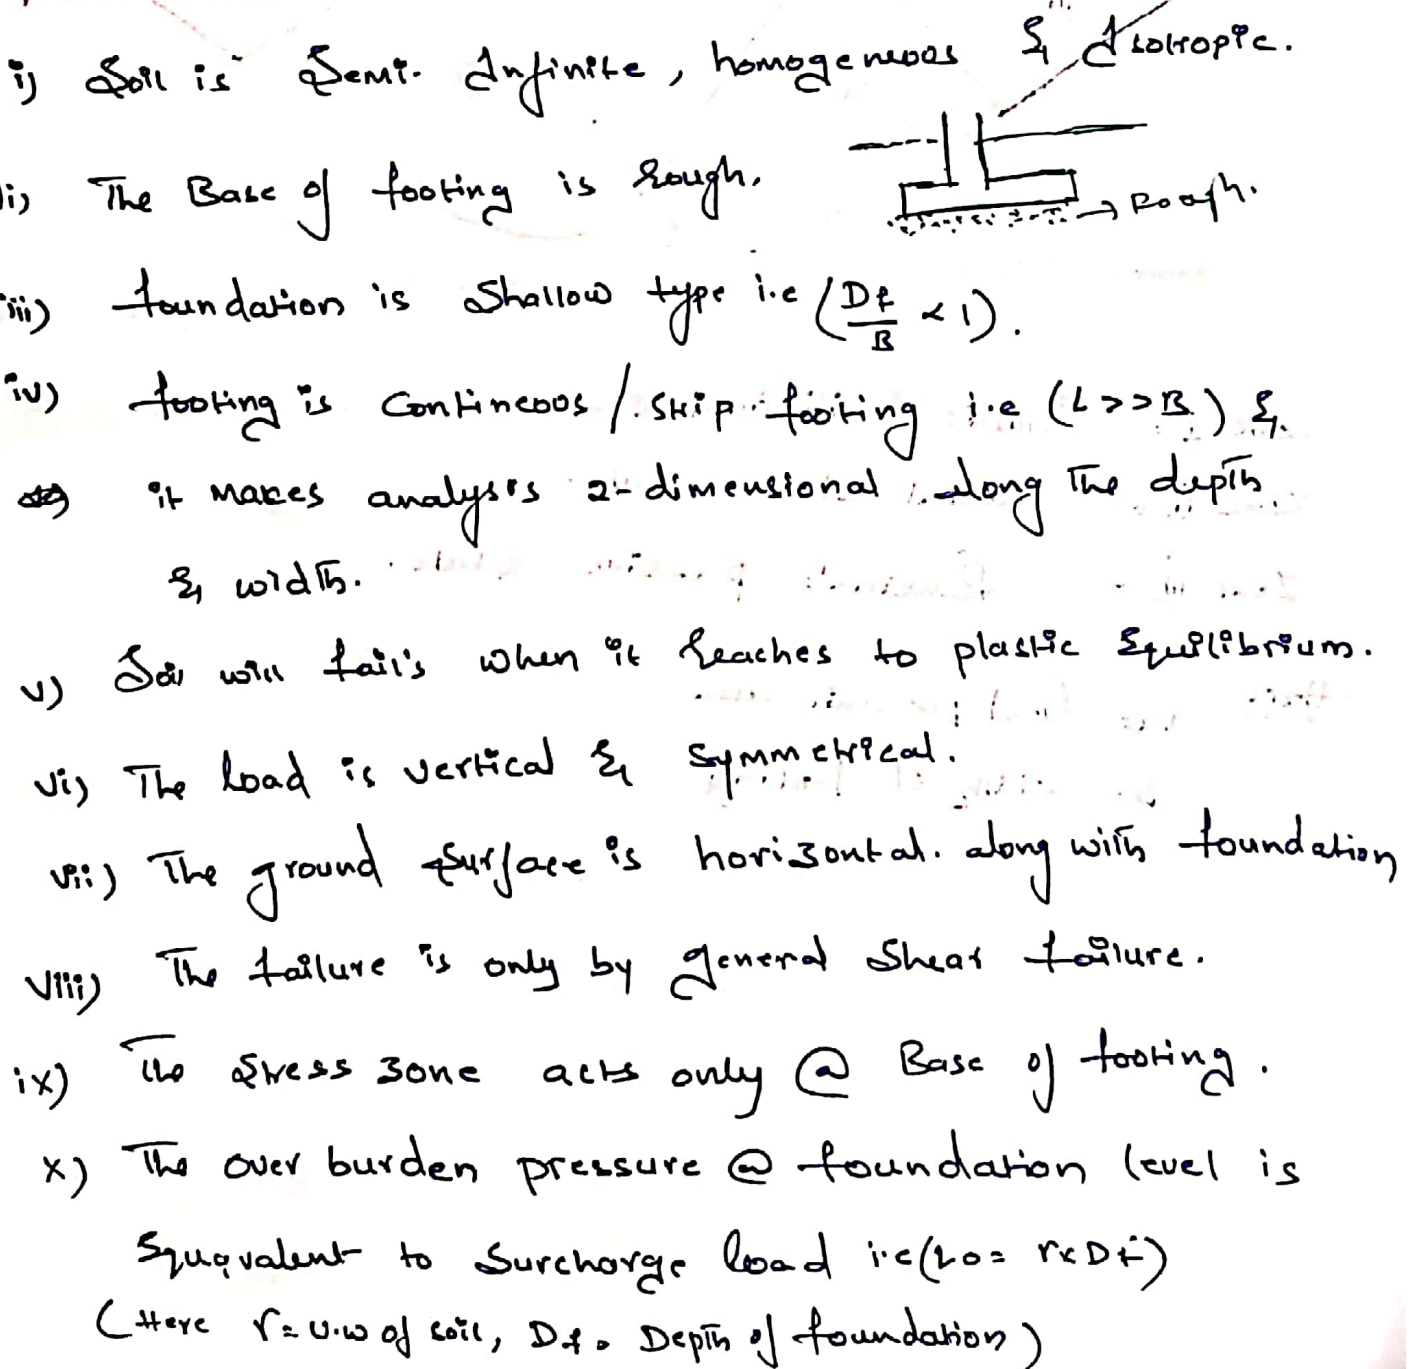 i) Soil is Semi-Infinite, homogeneous & Isotropic.
ii) The Base of footing is Rough.
→ Rough.
iii) foundation is Shallow type i.e (Df/B < 1).
iv) footing is Contineoos /. Strip footing i.e (L>>B) &
it makes analysis 2-dimensional along The depth
& width.
v) Soil will fail's when it Reaches to plastic Equilibrium.
vi) The load is vertical & Symmetrical.
vii) The ground Surface is horizontal. along with foundation
viii) The failure is only by general Shear failure.
ix) The Stress zone acts only @ Base of footing.
x) The over burden pressure @ foundation level is
Equivalent to Surcharge load i.e (q0 = γ×Df)
(Here γ = U.W of soil, Df = Depth of foundation)